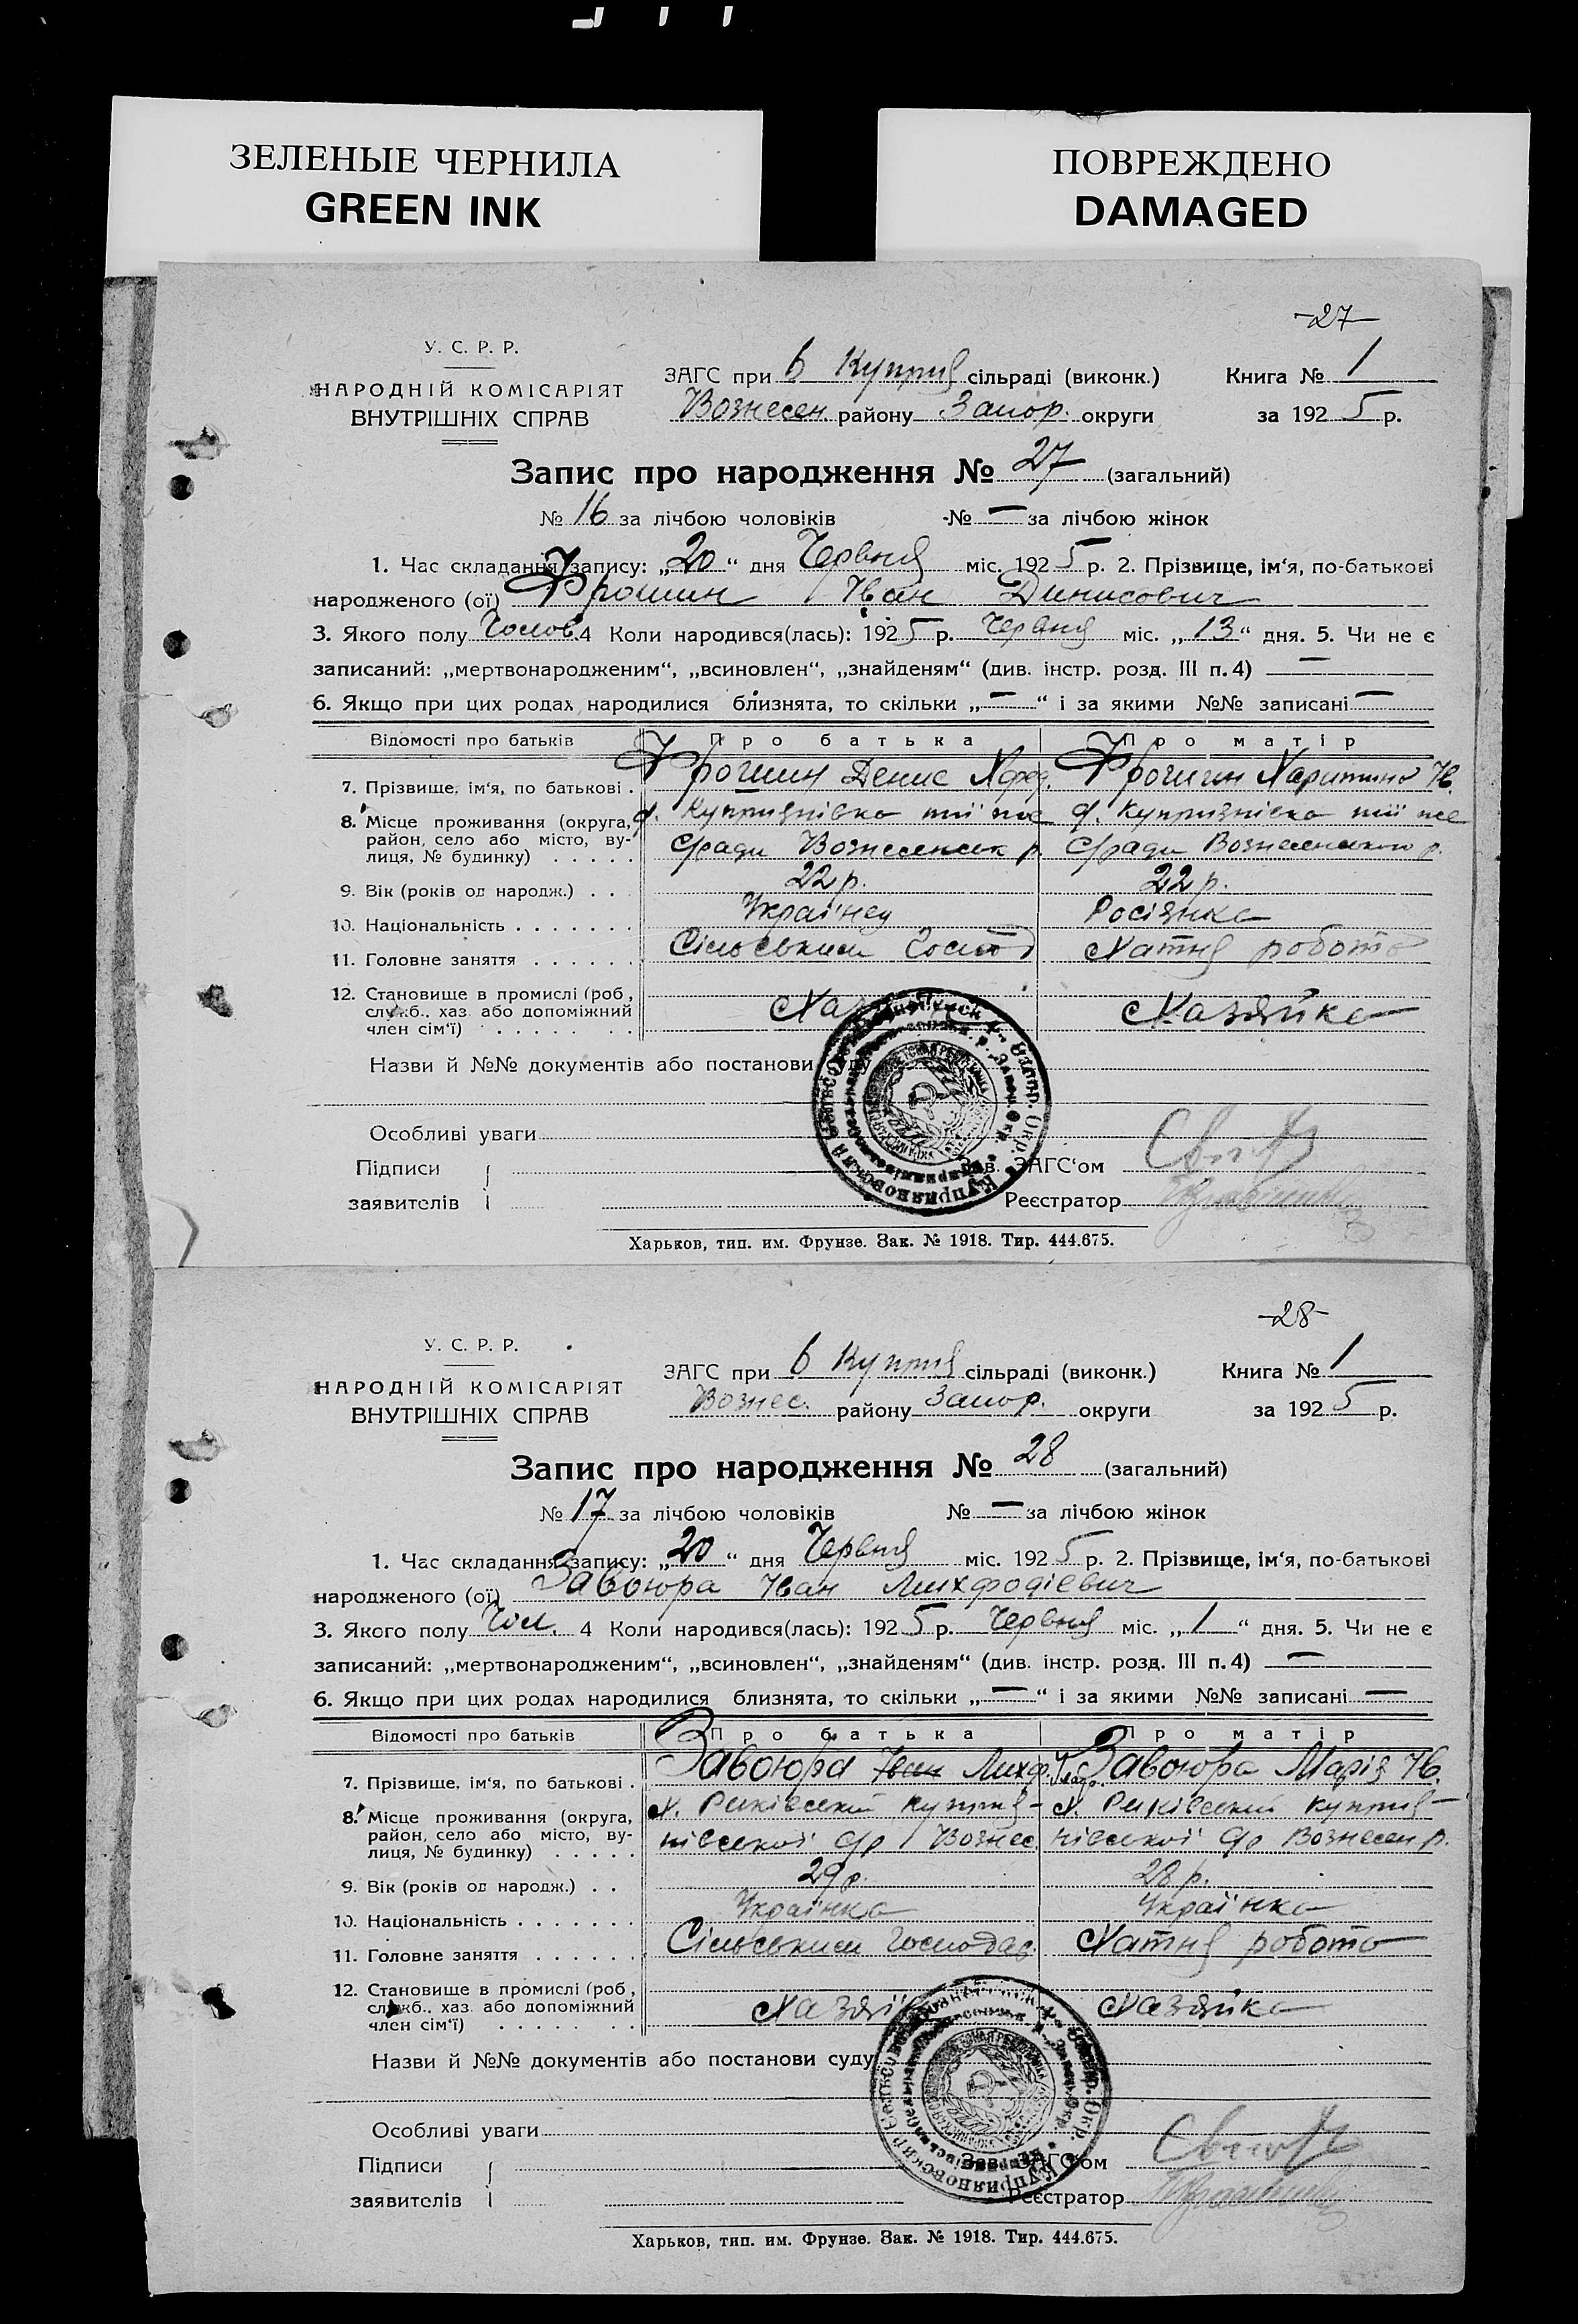 ЗЕЛЕНЫЕ ЧЕРНИЛА
GREEN INK
ПОВРЕЖДЕНО
DAMAGED
-27-
У. С. Р. Р.
НАРОДНІЙ КОМІСАРІЯТ
ВНУТРІШНІХ СПРАВ
ЗАГС при в Куприя сільраді (виконк.) Книга № 1
Вознесен. району Запор. округи за 1925 р.
Запис про народження № 27 (загальний)
№ 16 за лічбою чоловіків № — за лічбою жінок
1. Час складання запису: „20“ дня Червня міс. 1925 р. 2. Прізвище, ім‘я, по-батькові
народженого (ої) Фрошин Іван Динисович
3. Якого полу Чолов. 4 Коли народився(лась): 1925 р. Червня міс. „13“ дня. 5. Чи не є
записаний: „мертвонародженим“, „всиновлен“, „знайденям“ (див. інстр. розд. III п. 4) —
6. Якщо при цих родах народилися близнята, то скільки „—“ і за якими №№ записані —
Відомості про батьків Про батька Про матір
7. Прізвище, ім‘я, по батькові . Фрошин Денис Фрошин Харитина Ів.
8. Місце проживання (округа, район, село або місто, вулиця, № будинку) . . . . .
Куприянівка тії же Куприянівка тії же
с/ради Вознесенськ р. с/ради Вознесенського р.
9. Вік (років од народж.) . . 22 р. 22 р.
10. Національність . . . . . . . Українец Росіянка
11. Головне заняття . . . . . . Сільським Господ Хатня робота
12. Становище в промислі (роб, служб., хаз або допоміжний член сім‘ї) Хаз Хазяйка
Назви й №№ документів або постанови суду
Особливі уваги
Підписи
заявителів
Зав. ЗАГС‘ом
Реєстратор
Харьков, тип. им. Фрунзе. Зак. № 1918. Тир. 444.675.
-28-
У. С. Р. Р.
НАРОДНІЙ КОМІСАРІЯТ
ВНУТРІШНІХ СПРАВ
ЗАГС при в Куприя сільраді (виконк.) Книга № 1
Вознес. району Запор. округи за 1925 р.
Запис про народження № 28 (загальний)
№ 17 за лічбою чоловіків № — за лічбою жінок
1. Час складання запису: „20“ дня Червня міс. 1925 р. 2. Прізвище, ім‘я, по-батькові
народженого (ої) Завоюра Іван Михфодієвич
3. Якого полу Чол. 4 Коли народився(лась): 1925 р. Червня міс. „1“ дня. 5. Чи не є
записаний: „мертвонародженим“, „всиновлен“, „знайденям“ (див. інстр. розд. III п. 4) —
6. Якщо при цих родах народилися близнята, то скільки „—“ і за якими №№ записані —
Відомості про батьків Про батька Про матір
7. Прізвище, ім‘я, по батькові . Завоюра Михф. Завоюра Марія Ів.
8. Місце проживання (округа, район, село або місто, вулиця, № будинку) . . . . .
х. Риківський Куприя- х. Риківський Куприя-
нівської с/р Вознес. нівської с/р Вознесен р.
9. Вік (років од народж.) . . 29 р. 28 р.
10. Національність . . . . . . . Українка Українка
11. Головне заняття . . . . . . Сільським Господар Хатня робота
12. Становище в промислі (роб, служб., хаз або допоміжний член сім‘ї) Хазяї Хазяйка
Назви й №№ документів або постанови суду
Особливі уваги
Підписи
заявителів
Зав. ЗАГС‘ом
Реєстратор
Харьков, тип. им. Фрунзе. Зак. № 1918. Тир. 444.675.